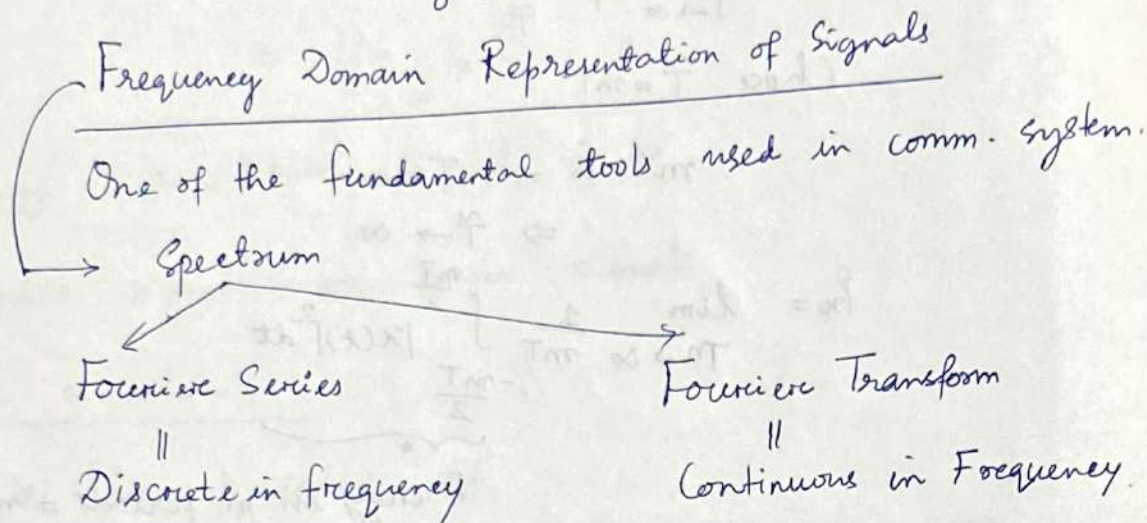 Frequency Domain Representation of Signals
One of the fundamental tools used in comm. system.
Spectrum
Fourier Series Fourier Transform
|| ||
Discrete in frequency Continuous in Frequency.